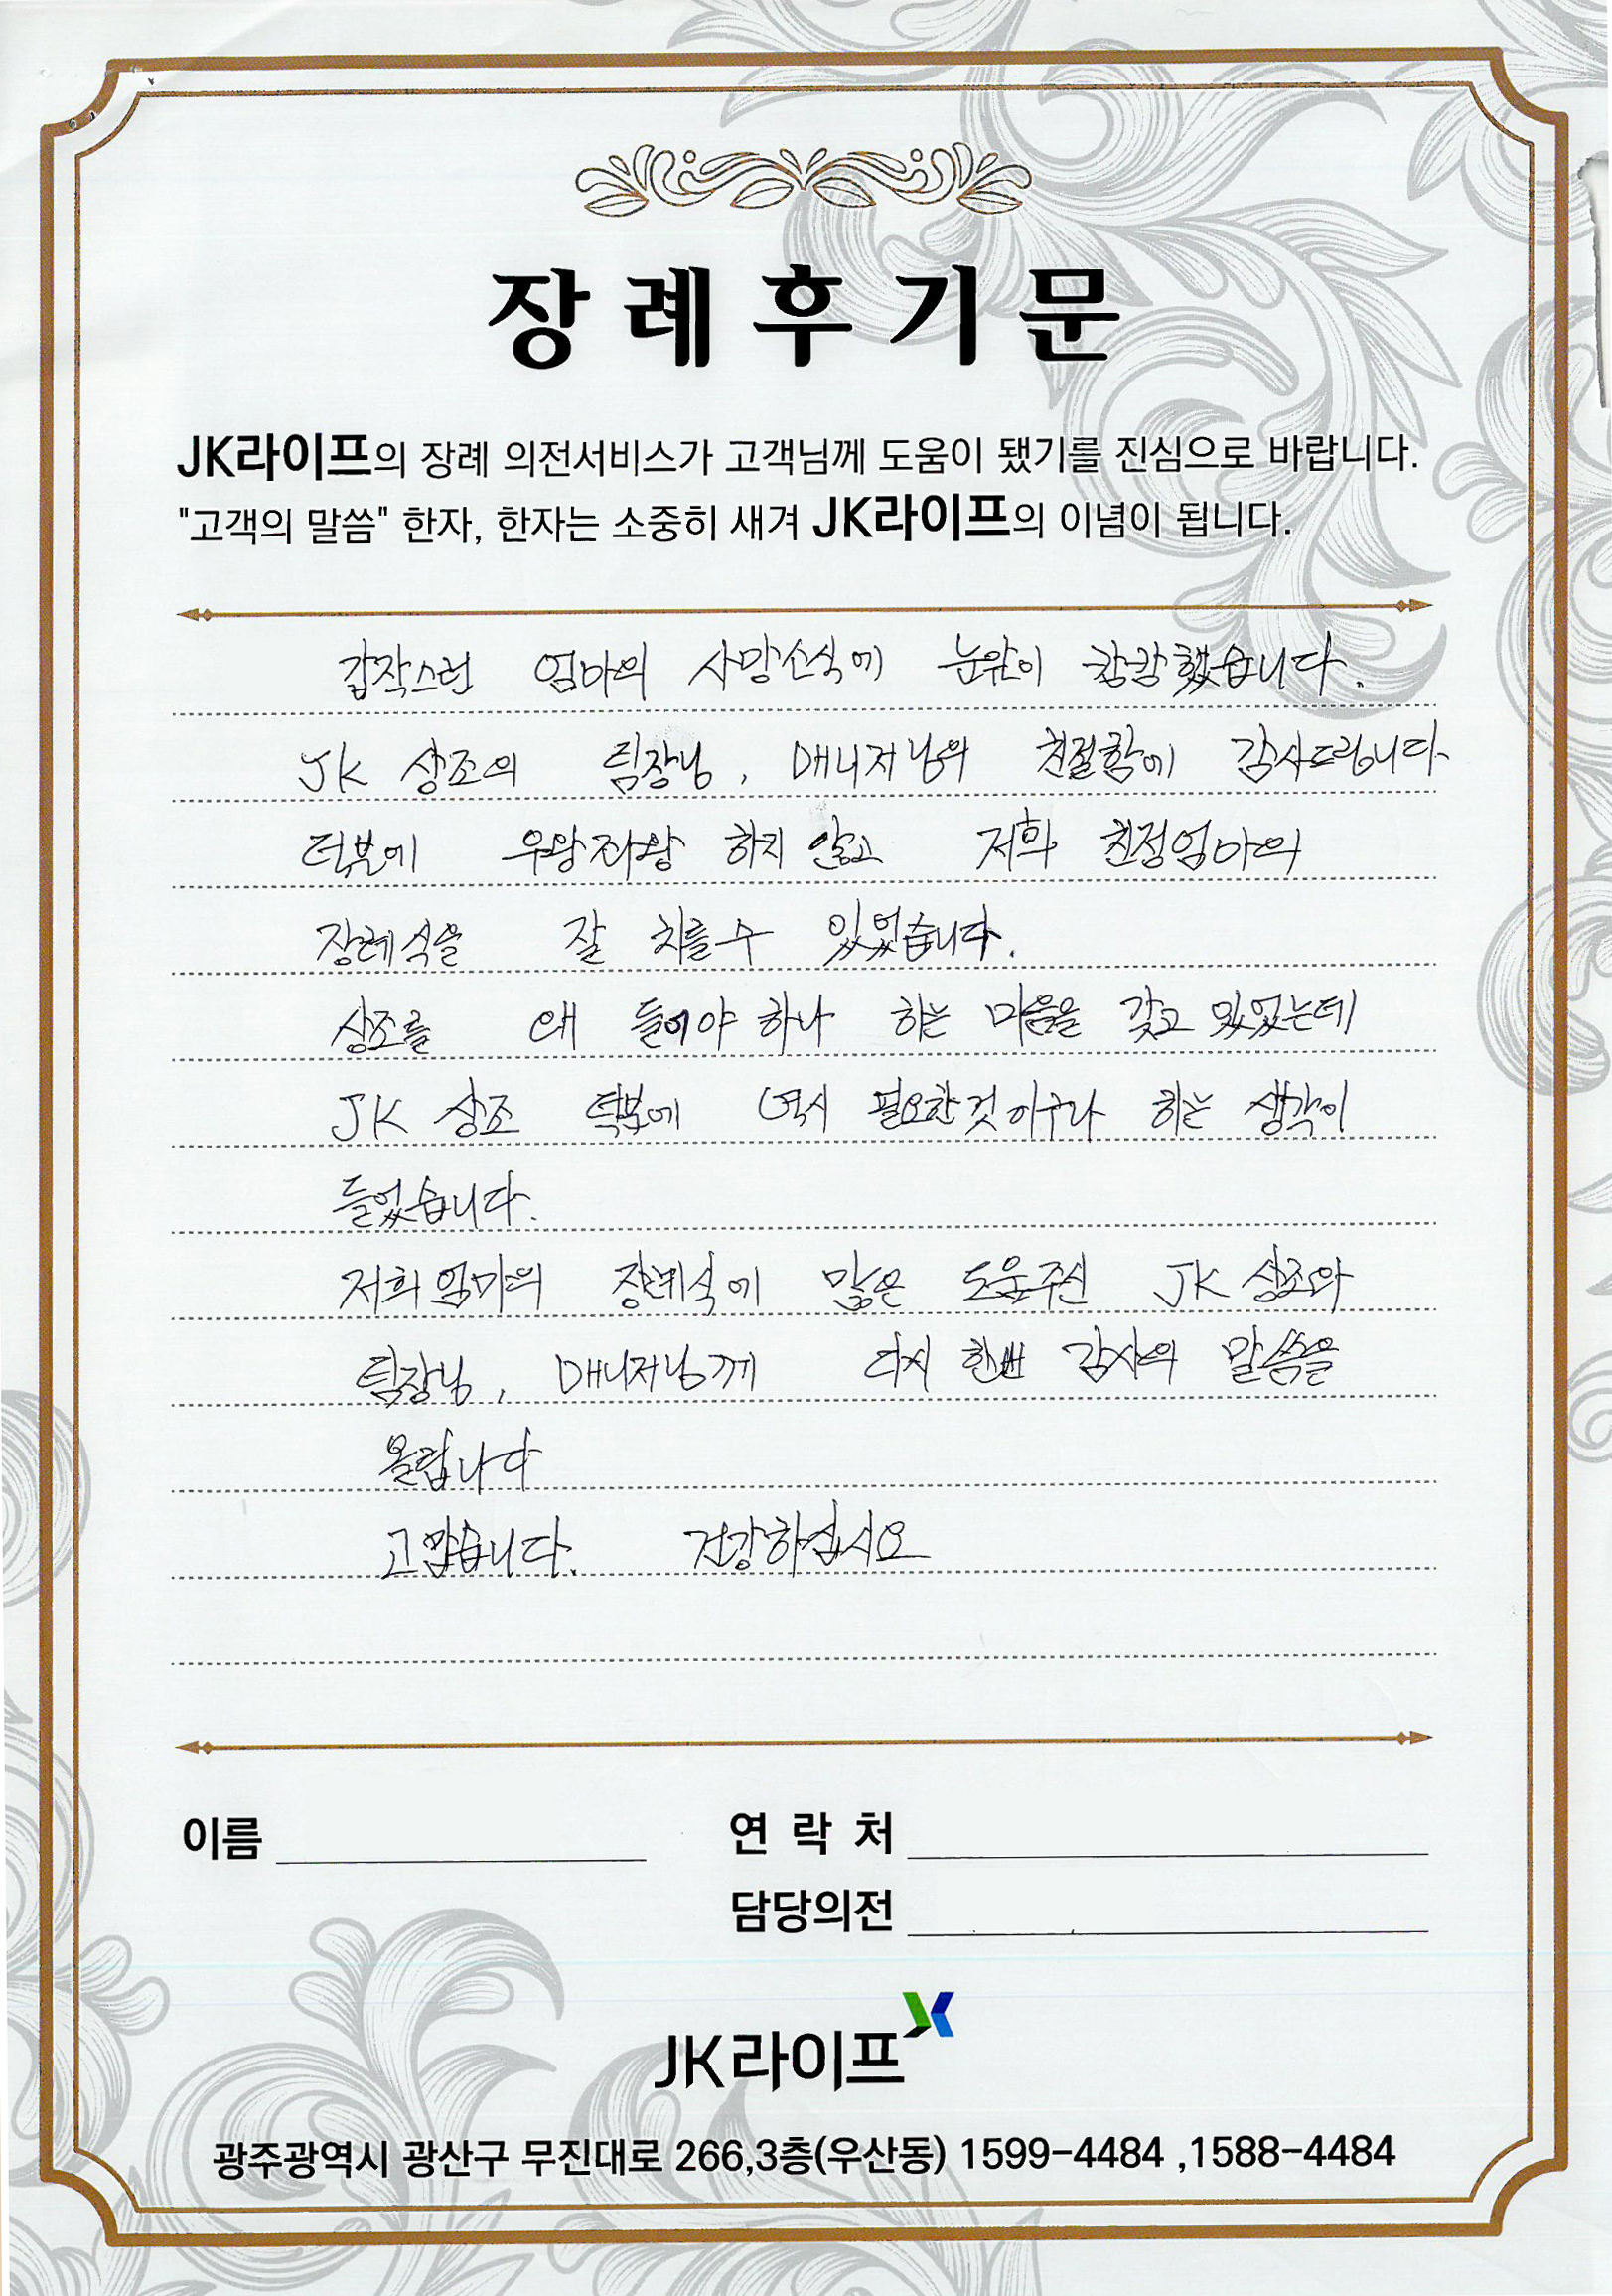 장례후기문
JK라이프의 장례 의전서비스가 고객님께 도움이 됐기를 진심으로 바랍니다.
"고객의 말씀" 한자, 한자는 소중히 새겨 JK라이프의 이념이 됩니다.
갑작스런 엄마의 사망소식에 눈앞이 캄캄했습니다.
JK 상조의 팀장님, 매니저님의 친절함에 감사드립니다
덕분에 우왕좌왕 하지 않고 저희 친정엄마의
장례식을 잘 치를수 있었습니다.
상조를 왜 들어야 하나 하는 마음을 갖고 있었는데
JK 상조 덕분에 역시 필요한것 이구나 하는 생각이
들었습니다.
저희 엄마의 장례식에 많은 도움주신 JK 상조와
팀장님, 매니저님께 다시 한번 감사의 말씀을
올립니다
고맙습니다. 건강하십시요
이름 연락처
담당의전
JK라이프
광주광역시 광산구 무진대로 266,3층(우산동) 1599-4484 ,1588-4484